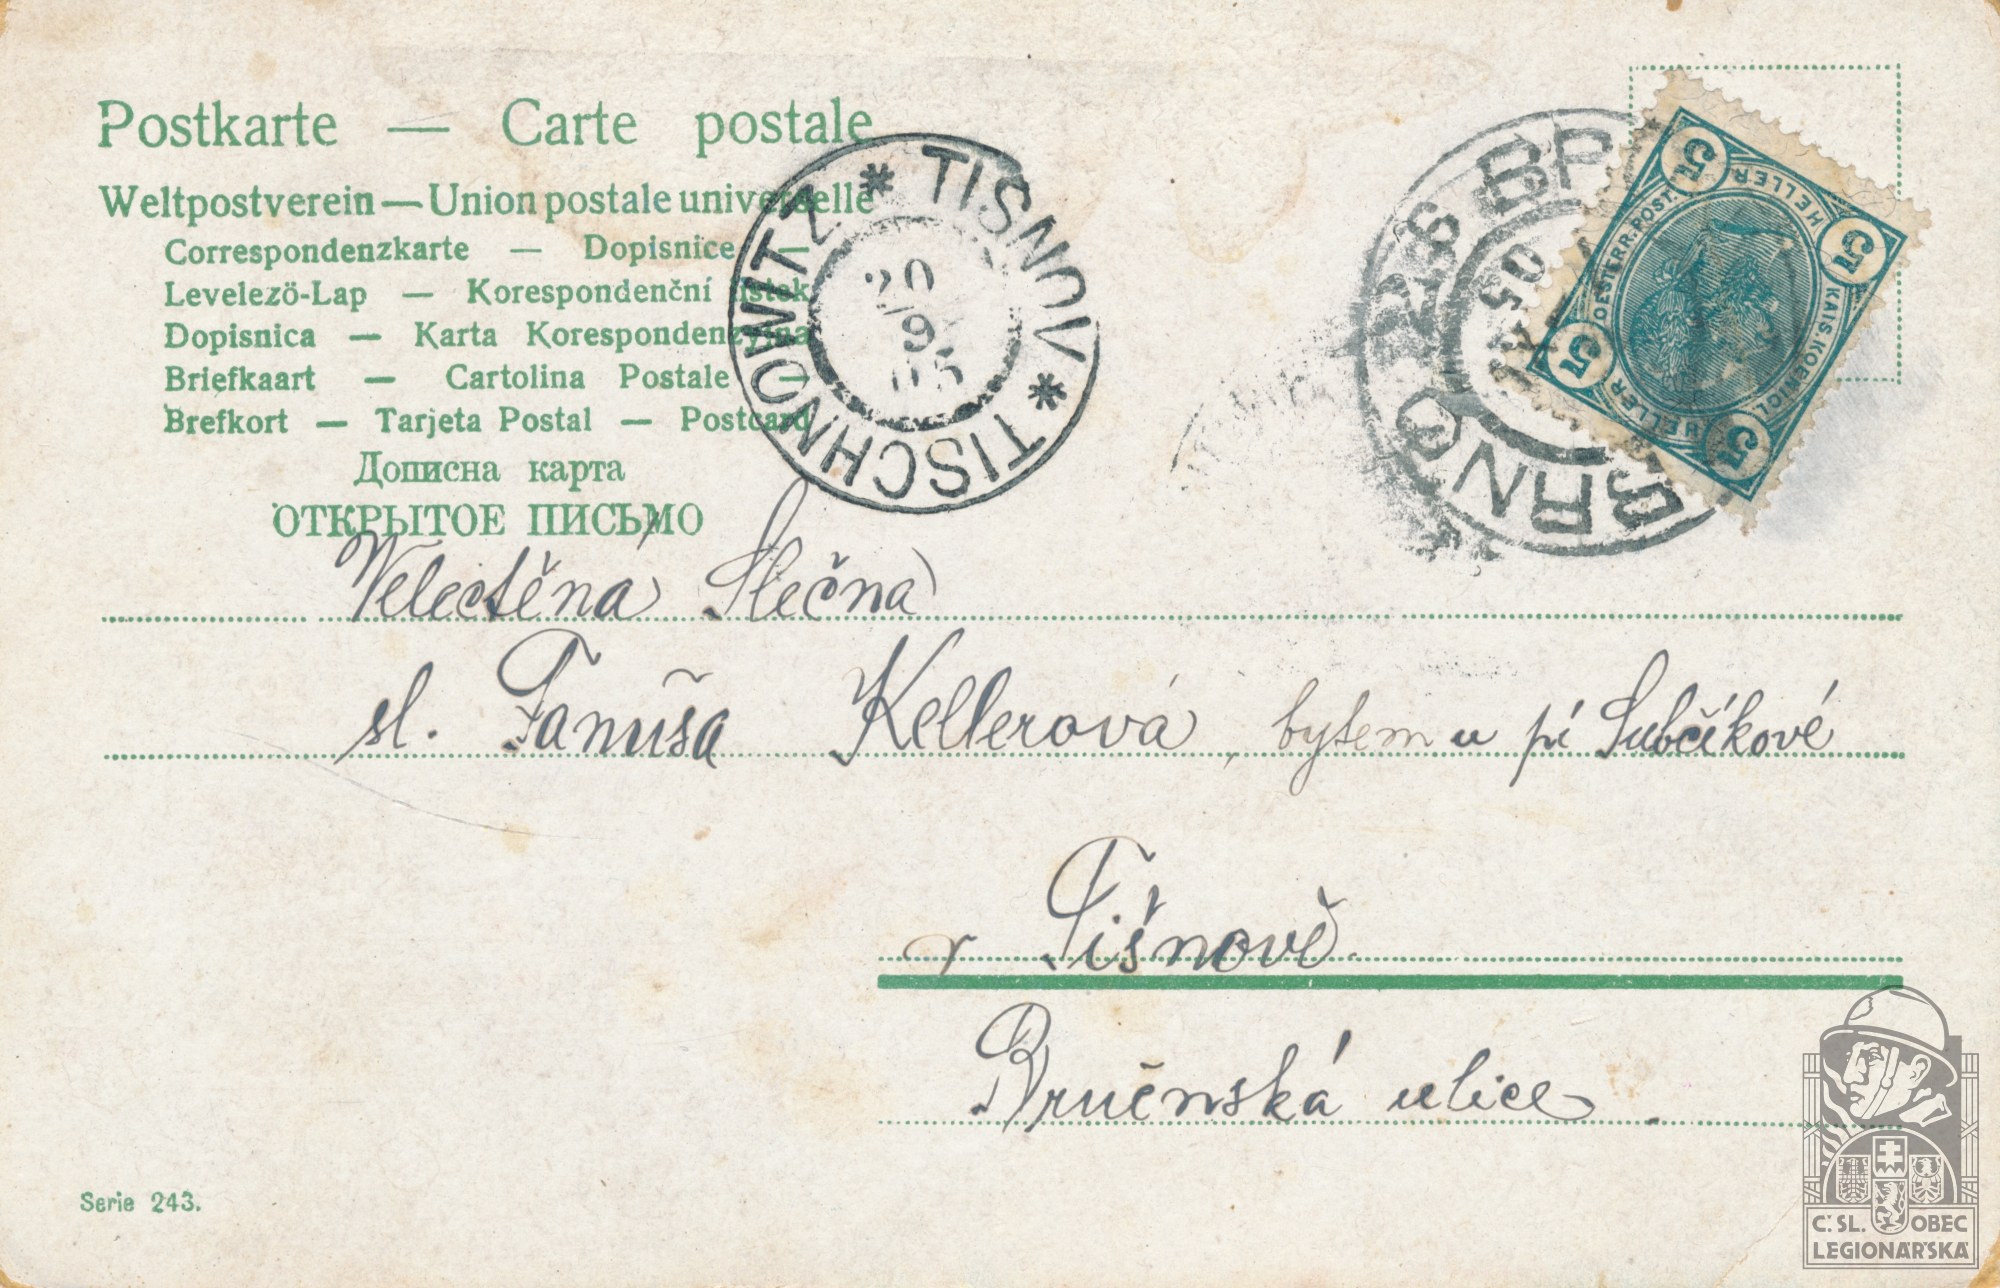 Postkarte — Carte postale
Weltpostverein — Union postale universelle
Correspondenzkarte — Dopisnice —
Levelező-Lap — Korespondenční lístek
Dopisnica — Karta Korespondenzyjna
Briefkaart — Cartolina Postale —
Brefkort — Tarjeta Postal — Postcard
Дописна карта
ОТКРЫТОЕ ПИСЬМО
* TISNOV * TISCHNOWITZ
20
9
05
BRNO
05
5 5 5 5
KAIS. KOENIGL. OESTERR. POST.
HELLER HELLER
Velectěná Slečna
sl. Fanuša Kellerová, bytem u pí Subčíkové
v Tišnově.
Brněnská ulice.
Serie 243.
Č. SL. OBEC
LEGIONÁŘSKÁ